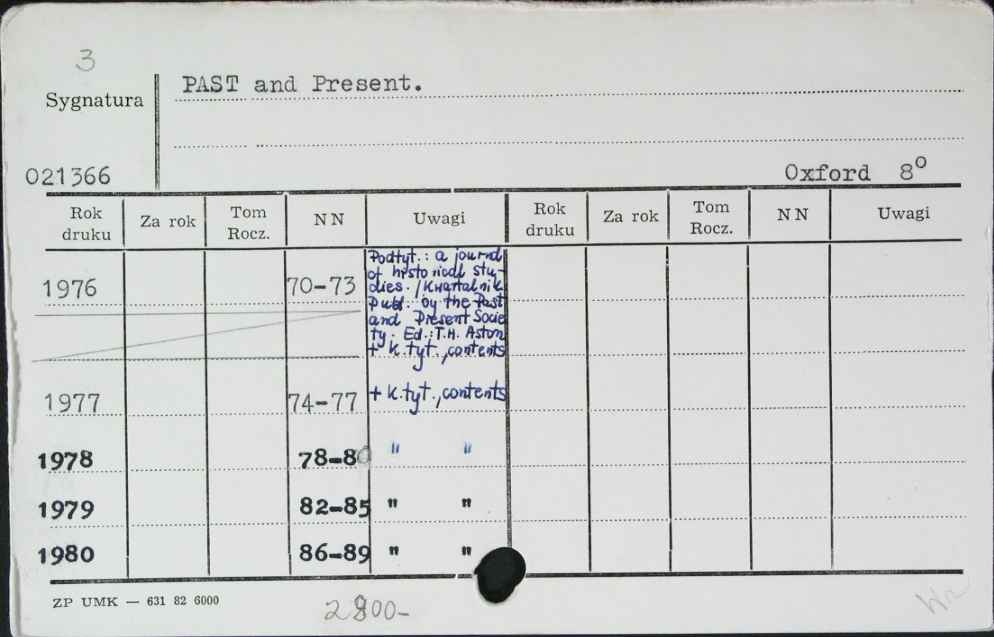 3
Sygnatura
PAST and Present.
021366
Oxford 8°
Rok druku Za rok Tom Rocz. NN Uwagi Rok druku Za rok Tom Rocz. NN Uwagi
1976 70-73
Podtyt.: a journal
of historical stu-
dies. /Kwartalnik
Publ. by the Past
and Present Socie
ty. Ed.: T.H. Aston
+ k.tyt., contents
1977 74-77 + k.tyt., contents
1978 78-80 " "
1979 82-85 " "
1980 86-89 " "
ZP UMK — 631 82 6000